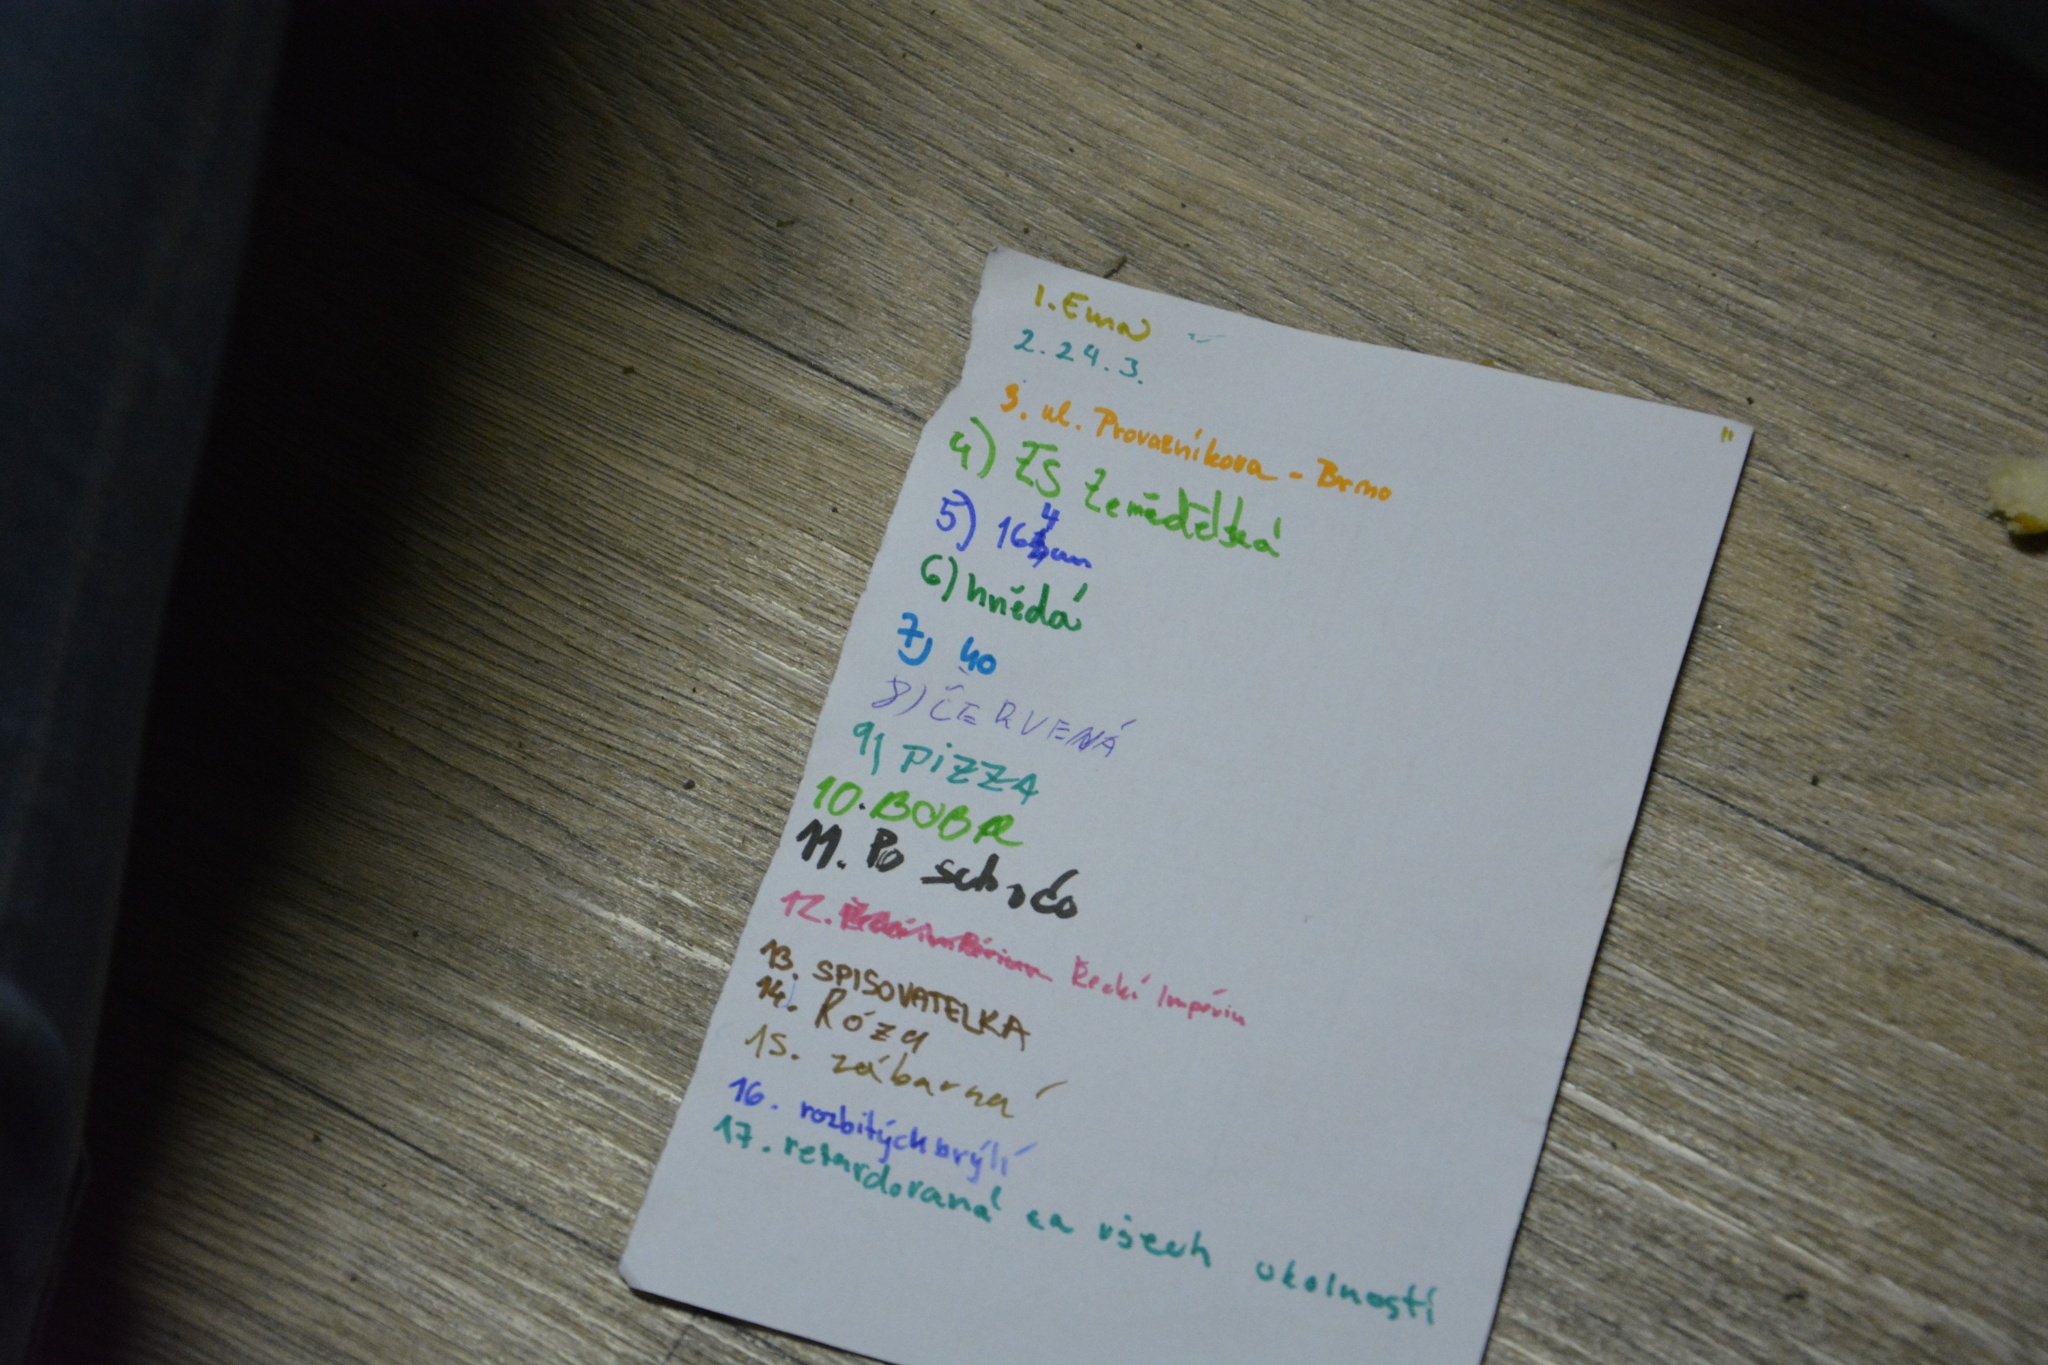 1. Ema
2. 24.3.
3. ul. Provazníkova - Brno
4) ZŠ Zemědělská
5) 164cm
6) hnědá
7) 40
8) ČERVENÁ
9) PIZZA
10. BOBR
11. Po
12. Řecké Impérium
13. SPISOVATELKA
14. Róza
15. zábavná
16. rozbitých brýlí
17. retardovaná za všech okolností